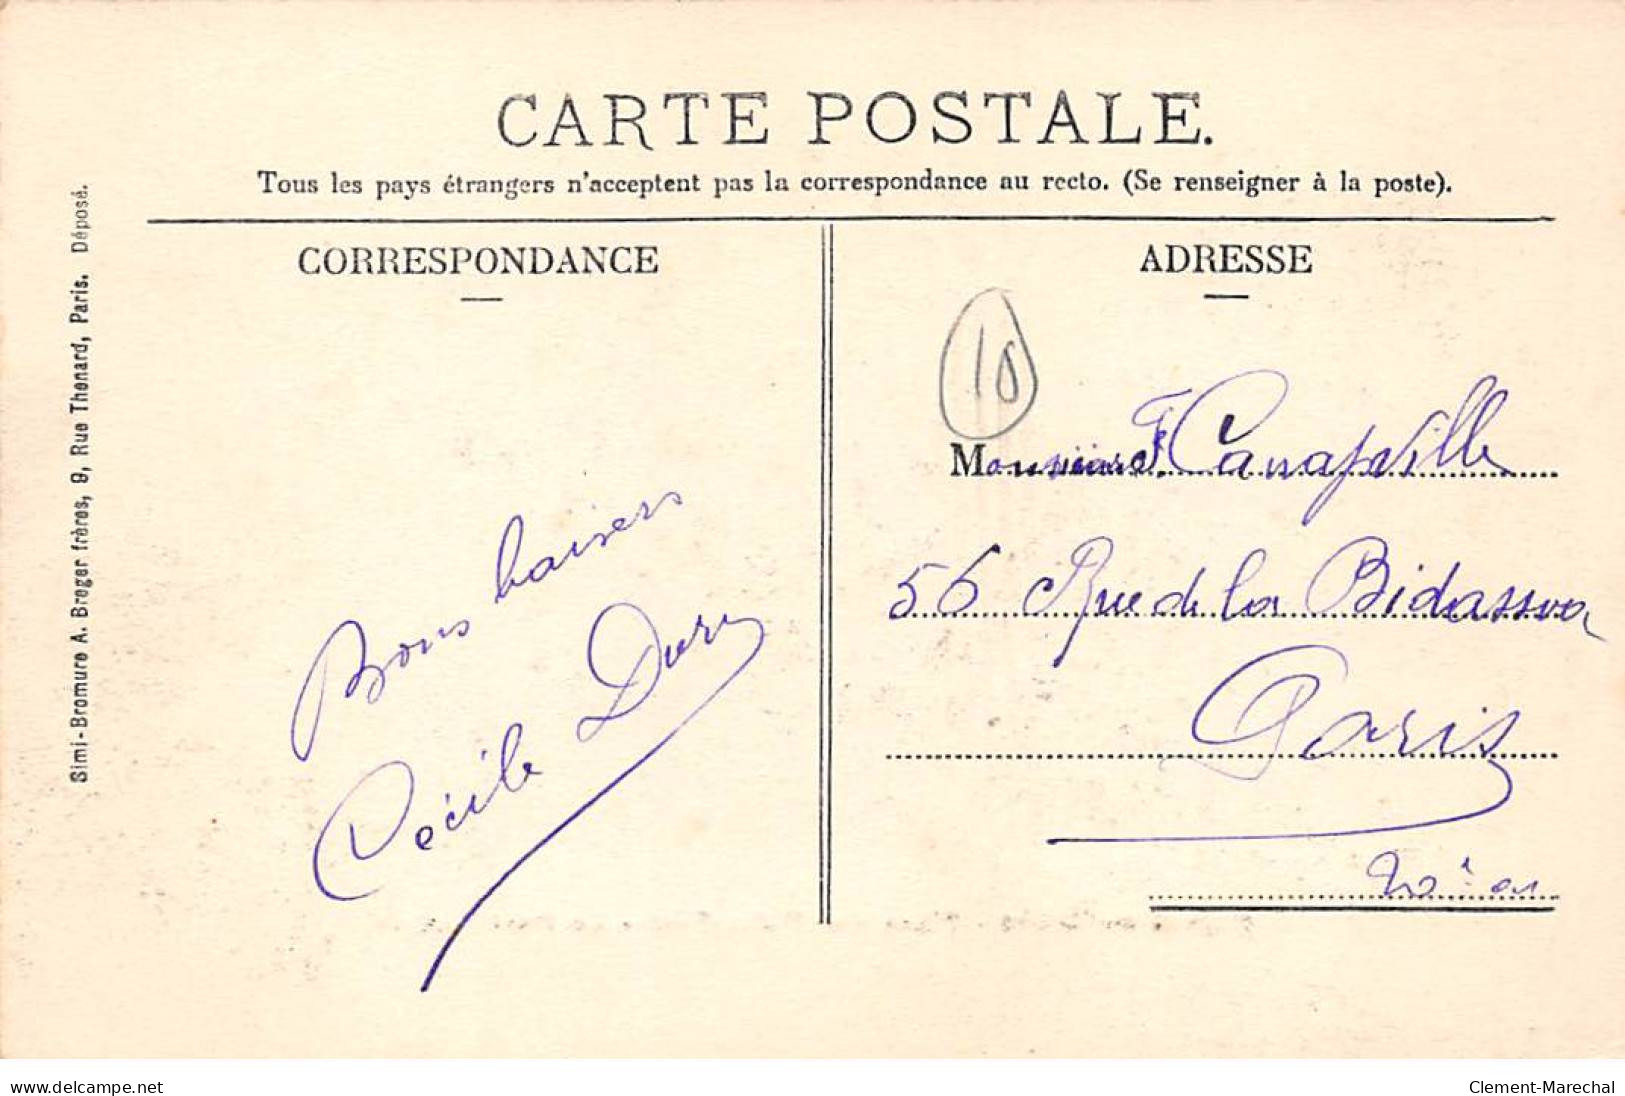 CARTE POSTALE.
Tous les pays étrangers n'acceptent pas la correspondance au recto. (Se renseigner à la poste).
CORRESPONDANCE
ADRESSE
Simi-Bromure A. Breger frères, 9, Rue Thénard, Paris. Déposé.
Bons baisers
Cécile Dury
10
Monsieur F. Canapville
56 Rue de la Bidassoa
Paris
www.delcampe.net
Clement-Marechal